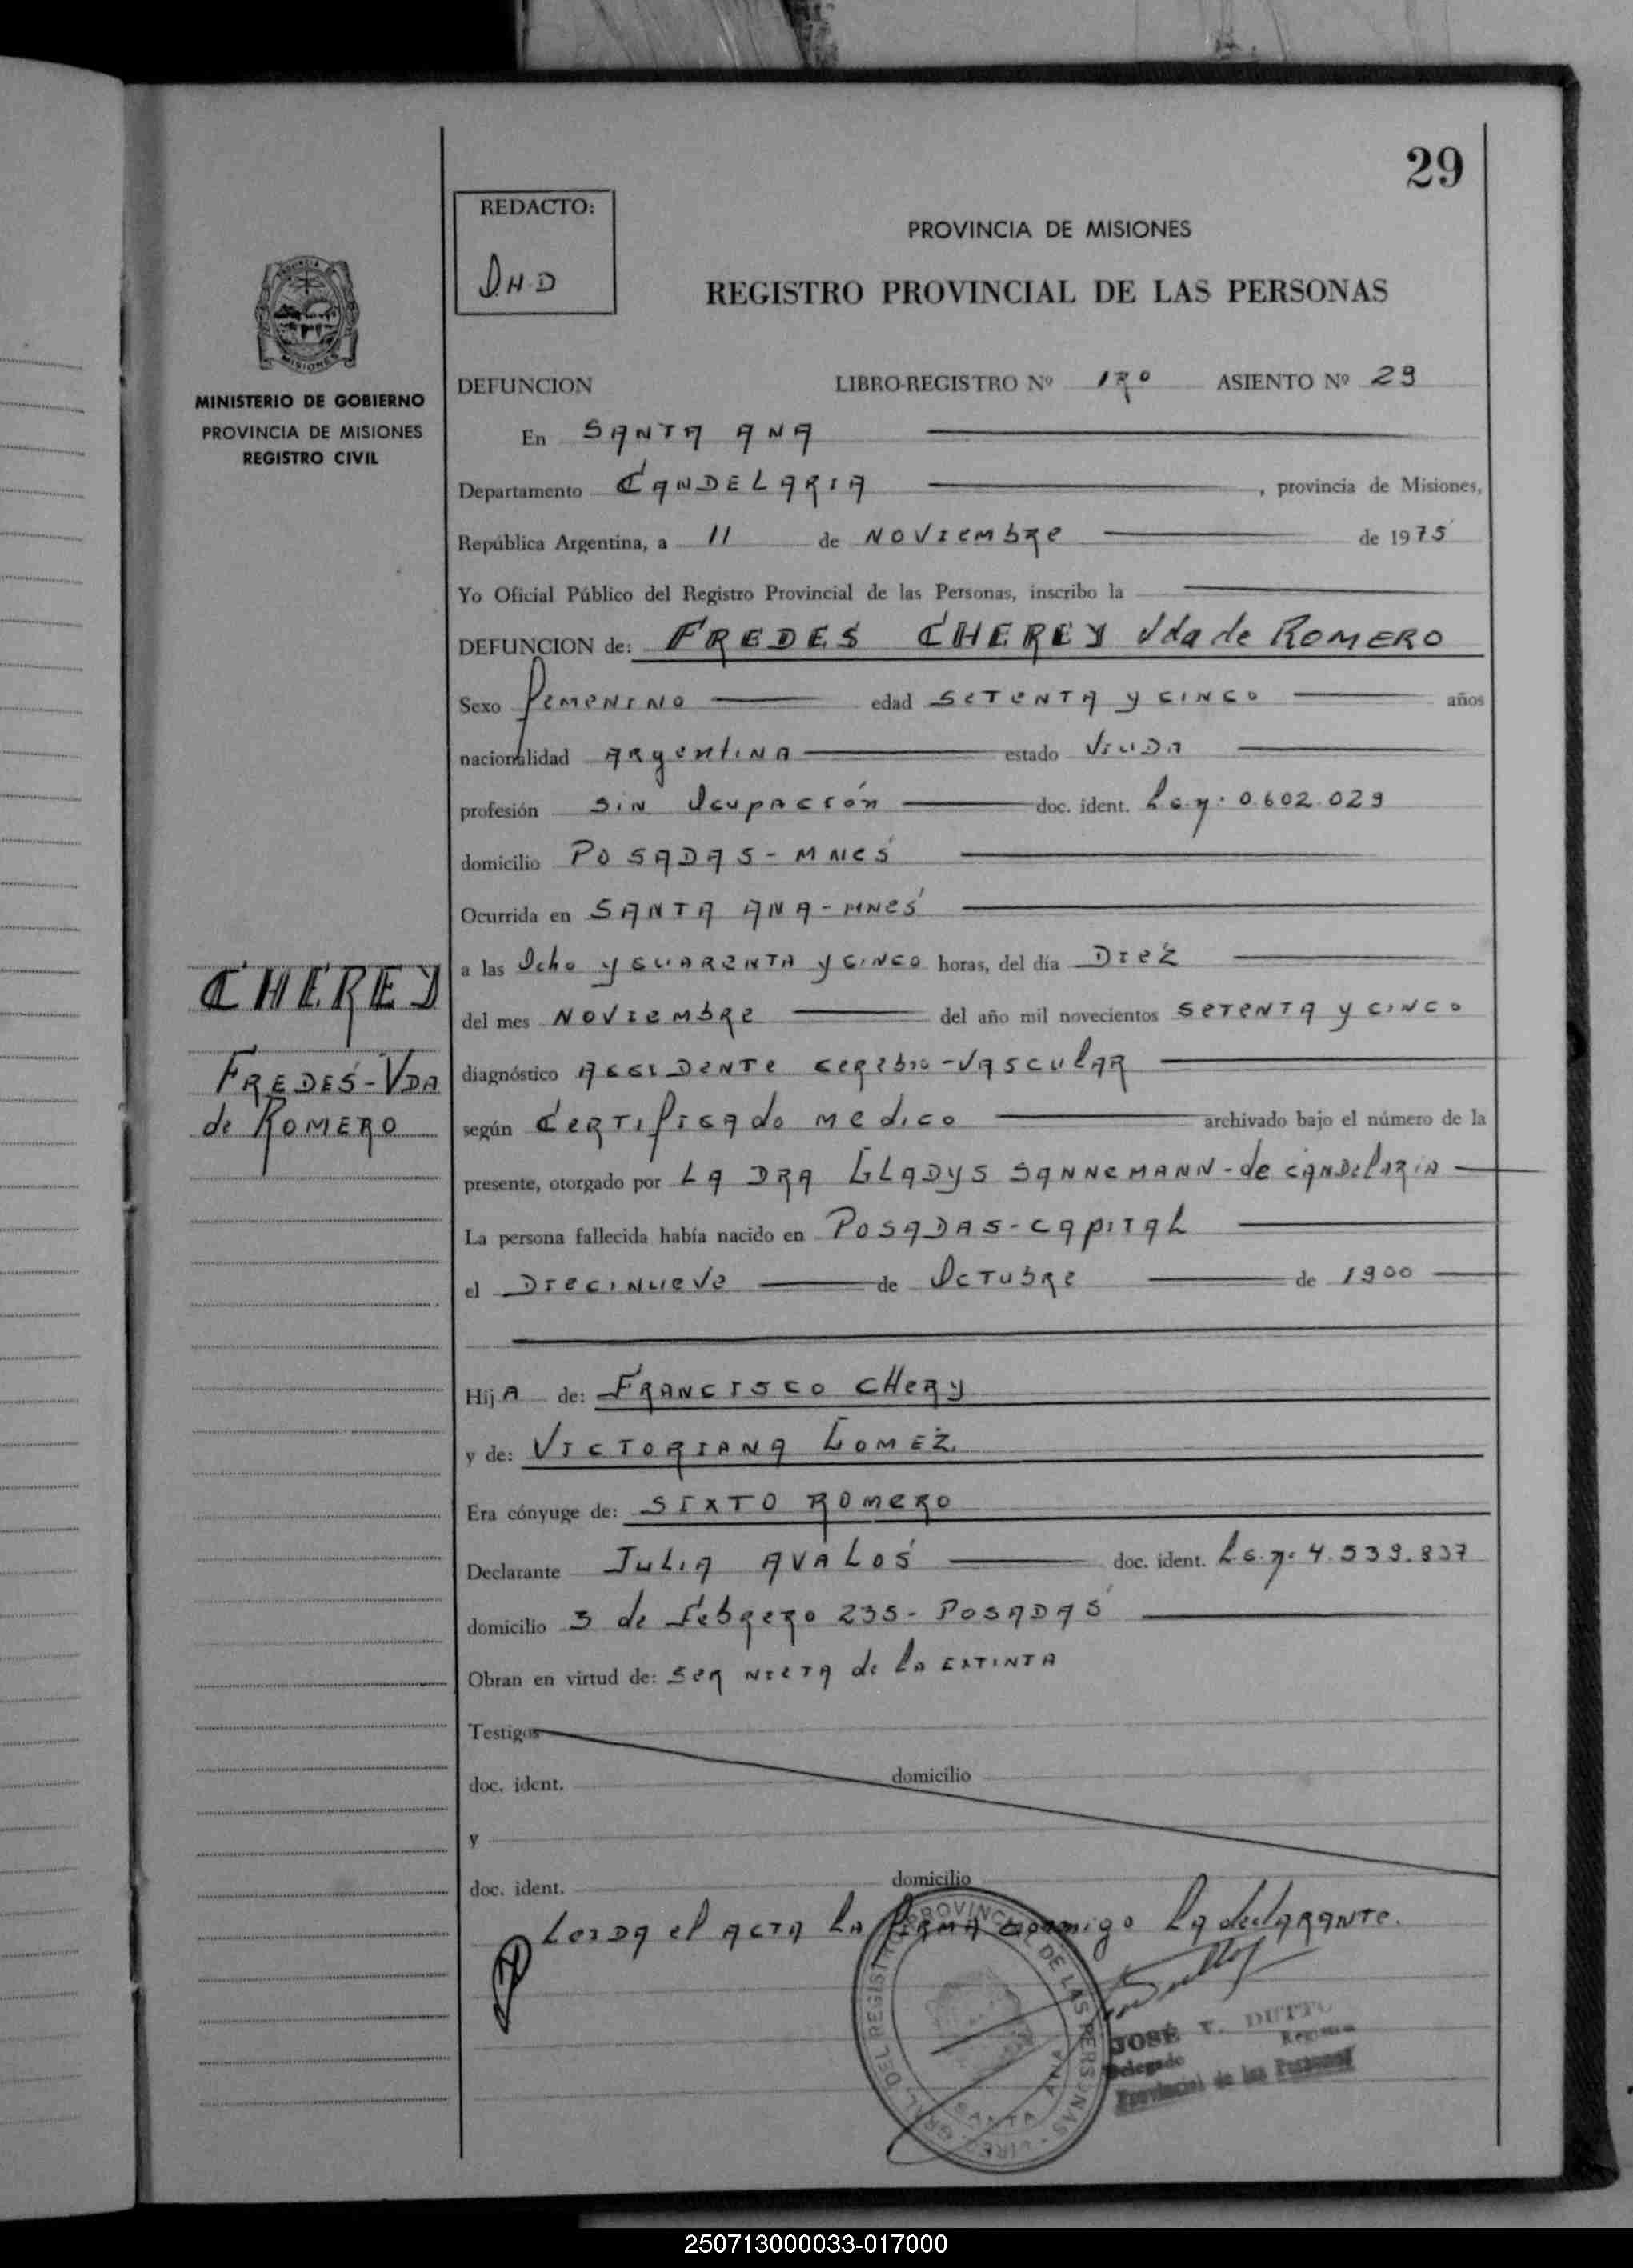 29
REDACTO:
D.H.D
PROVINCIA DE MISIONES
REGISTRO PROVINCIAL DE LAS PERSONAS
MISIONES
MINISTERIO DE GOBIERNO
PROVINCIA DE MISIONES
REGISTRO CIVIL
DEFUNCION LIBRO-REGISTRO Nº 17º ASIENTO Nº 29
En SANTA ANA
Departamento CANDELARIA , provincia de Misiones,
República Argentina, a 11 de NOVIEMBRE de 1975
Yo Oficial Público del Registro Provincial de las Personas, inscribo la
DEFUNCION de: FREDES CHEREY Vda de ROMERO
Sexo femenino edad SETENTA y CINCO años
nacionalidad ARgentina estado VIUDA
profesión SIN Ocupación doc. ident. L.C.Nº: 0.602.029
domicilio POSADAS - MNES
Ocurrida en SANTA ANA - MNES
a las Ocho y CUARENTA y CINCO horas, del día DIEZ
del mes NOVIEMBRE del año mil novecientos SETENTA y CINCO
diagnóstico ACCIDENTE CEREbro-VASCULAR
según CERTIFICAdo medico archivado bajo el número de la
presente, otorgado por LA DRA GLADYS SANNEMANN - de CANDELARIA
La persona fallecida había nacido en POSADAS - CAPITAL
el DIECINUEVE de OCTUBRE de 1900
CHEREY
FREDES - VDA
de ROMERO
Hij A de: FRANCISCO CHERY
y de: VICTORIANA GOMEZ.
Era cónyuge de: SIXTO ROMERO
Declarante JULIA AVALOS doc. ident. L.C.Nº 4.539.837
domicilio 3 de Febrero 235 - POSADAS
Obran en virtud de: SER NIETA de la EXTINTA
Testigos
doc. ident. domicilio
y
doc. ident. domicilio
Leida el ACTA LA FIRMA conmigo La declARANTE.
JOSÉ T. DUTTO
Delegado Registro
Provincial de las Personas
250713000033-017000